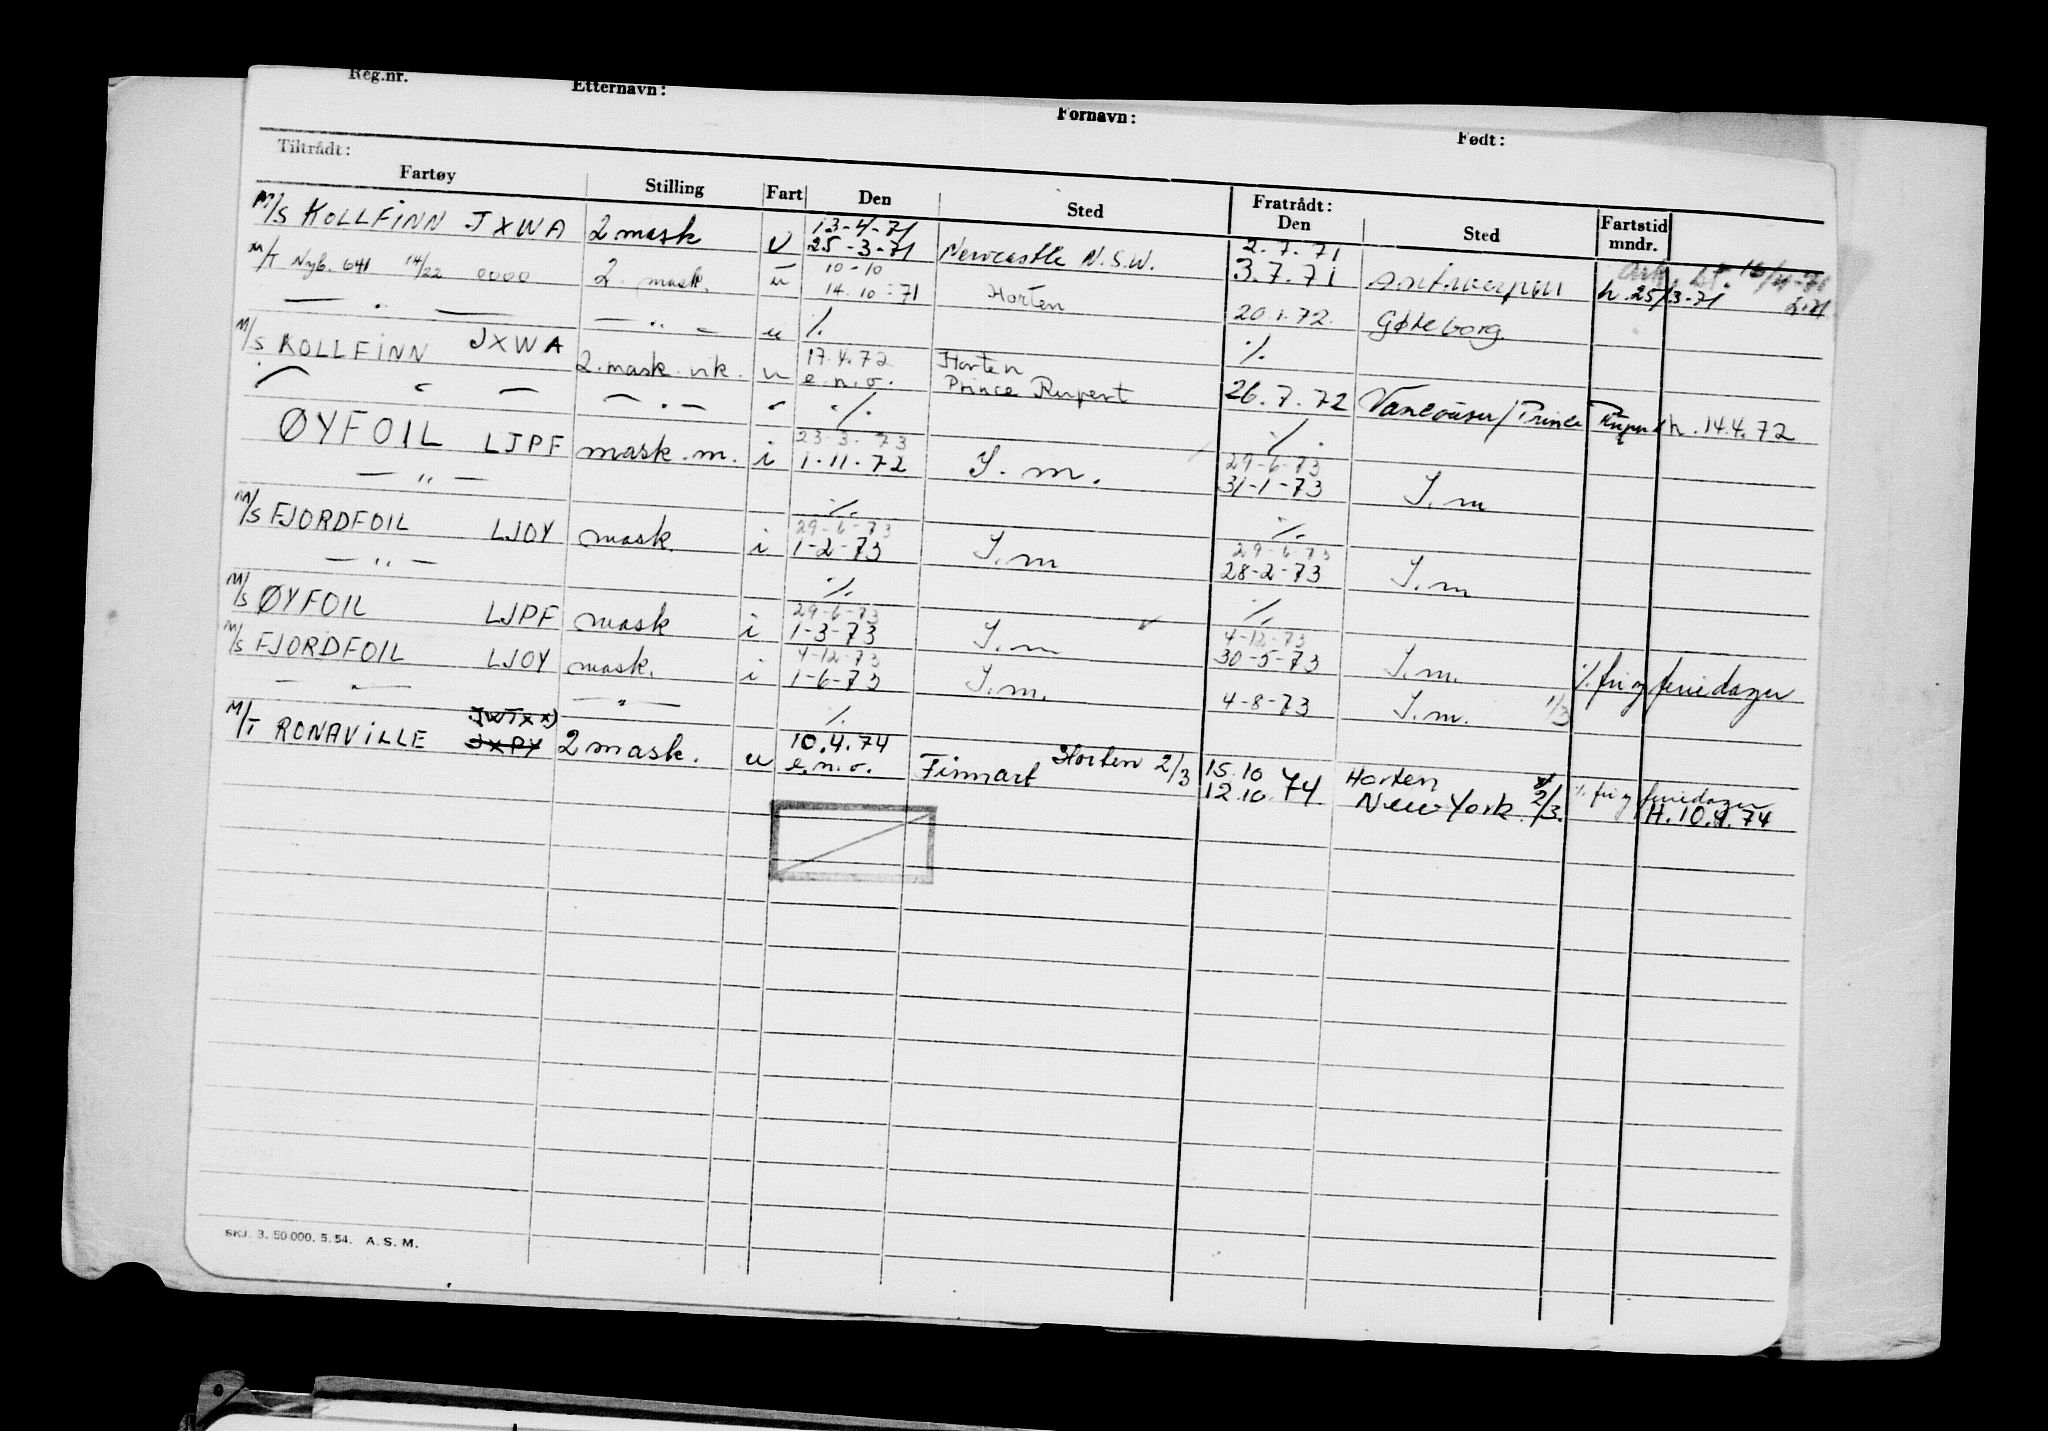 Reg.nr. Etternavn: Fornavn: Født:
Tiltrådt: Fratrådt:
Fartøy Stilling Fart Den Sted Den Sted Fartstid mndr.
13-4-71 2.7.71
M/S KOLLFINN JXWA 2 mask U 25-3-71 Newcastle N.S.W. 3.7.71 Antwerpen h. 25/3-71
10-10
M/T Nyb. 641 14/22 0000 2. mask. u 14.10-71 Horten 20.1.72. Gøteborg.
— " — — " — u % %
17.4.72 Horten
M/S KOLLFINN JXWA 2. mask. vik. u e.n.o. Prince Rupert 26.7.72 Vancouver/Prince Rupert h. 14.4.72
— " — — " — " % %
23-3-73 29-6-73
ØYFOIL LJPF mask.m. i 1-11-72 I.m. 31-1-73 I.m
— " — % %
29-6-73 29-6-73
M/S FJORDFOIL LJOY mask. i 1-2-73 I.m 28-2-73 I.m
— " — % %
29-6-73 4-12-73
M/S ØYFOIL LJPF mask i 1-3-73 I.m 30-5-73 I.m. % fri og feriedager
4-12-73
M/S FJORDFOIL LJOY mask. i 1-6-73 I.m. 4-8-73 I.m. 1/3
— " — — " — %
JWTX x) 10.4.74 Horten 2/3 15.10 Horten % fri og feriedager
M/T RONAVILLE JXPY 2 mask. u e.n.o. Finnart 12.10.74 New York 2/3. H. 10.4.74
SKJ. 3. 50.000. 5. 54. A. S. M.